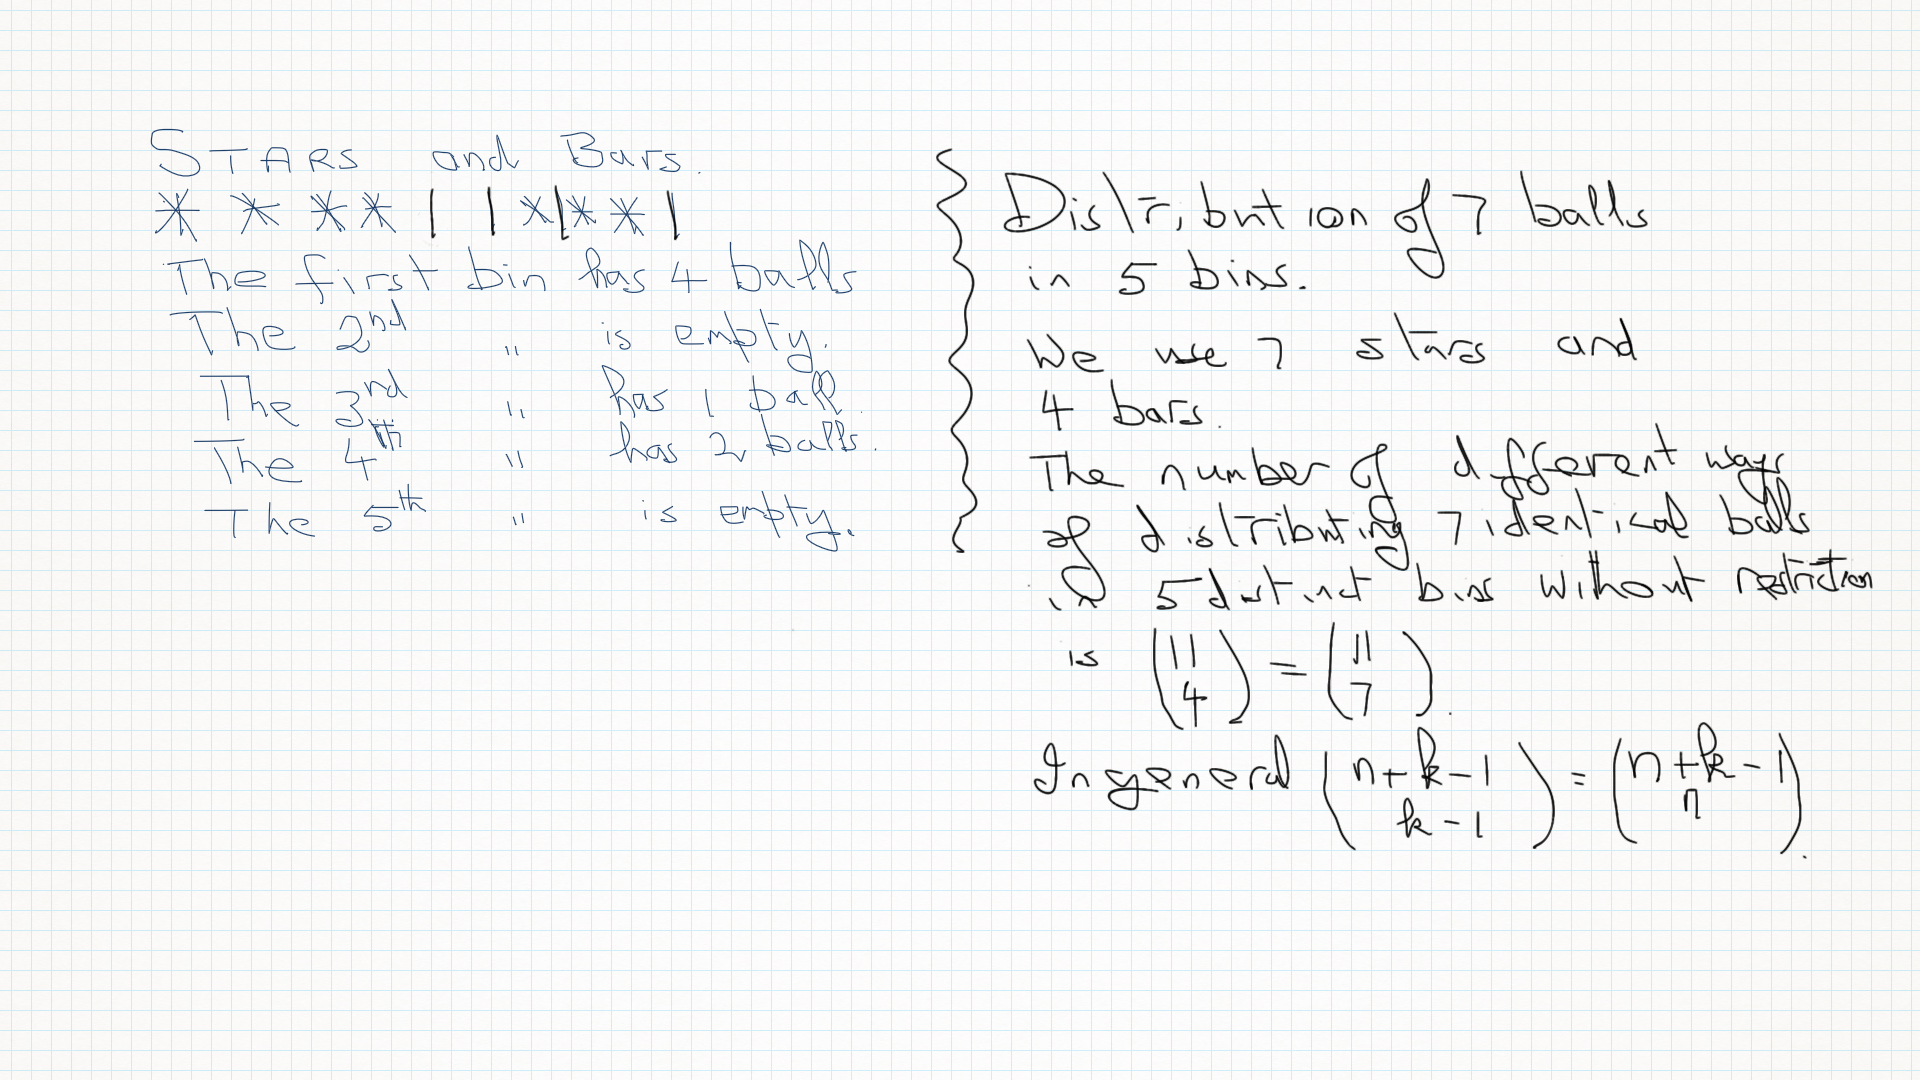 STARS and Bars.
* * * * | | * | * * |
The first bin has 4 balls
The 2nd " is empty.
The 3rd " has 1 ball.
The 4th " has 2 balls.
The 5th " is empty.
Distribution of 7 balls
in 5 bins.
We use 7 stars and
4 bars.
The number of different ways
of distributing 7 identical balls
in 5 distinct bins without restriction
is (11 4) = (11 7).
In general (n+k-1 k-1) = (n+k-1 n).